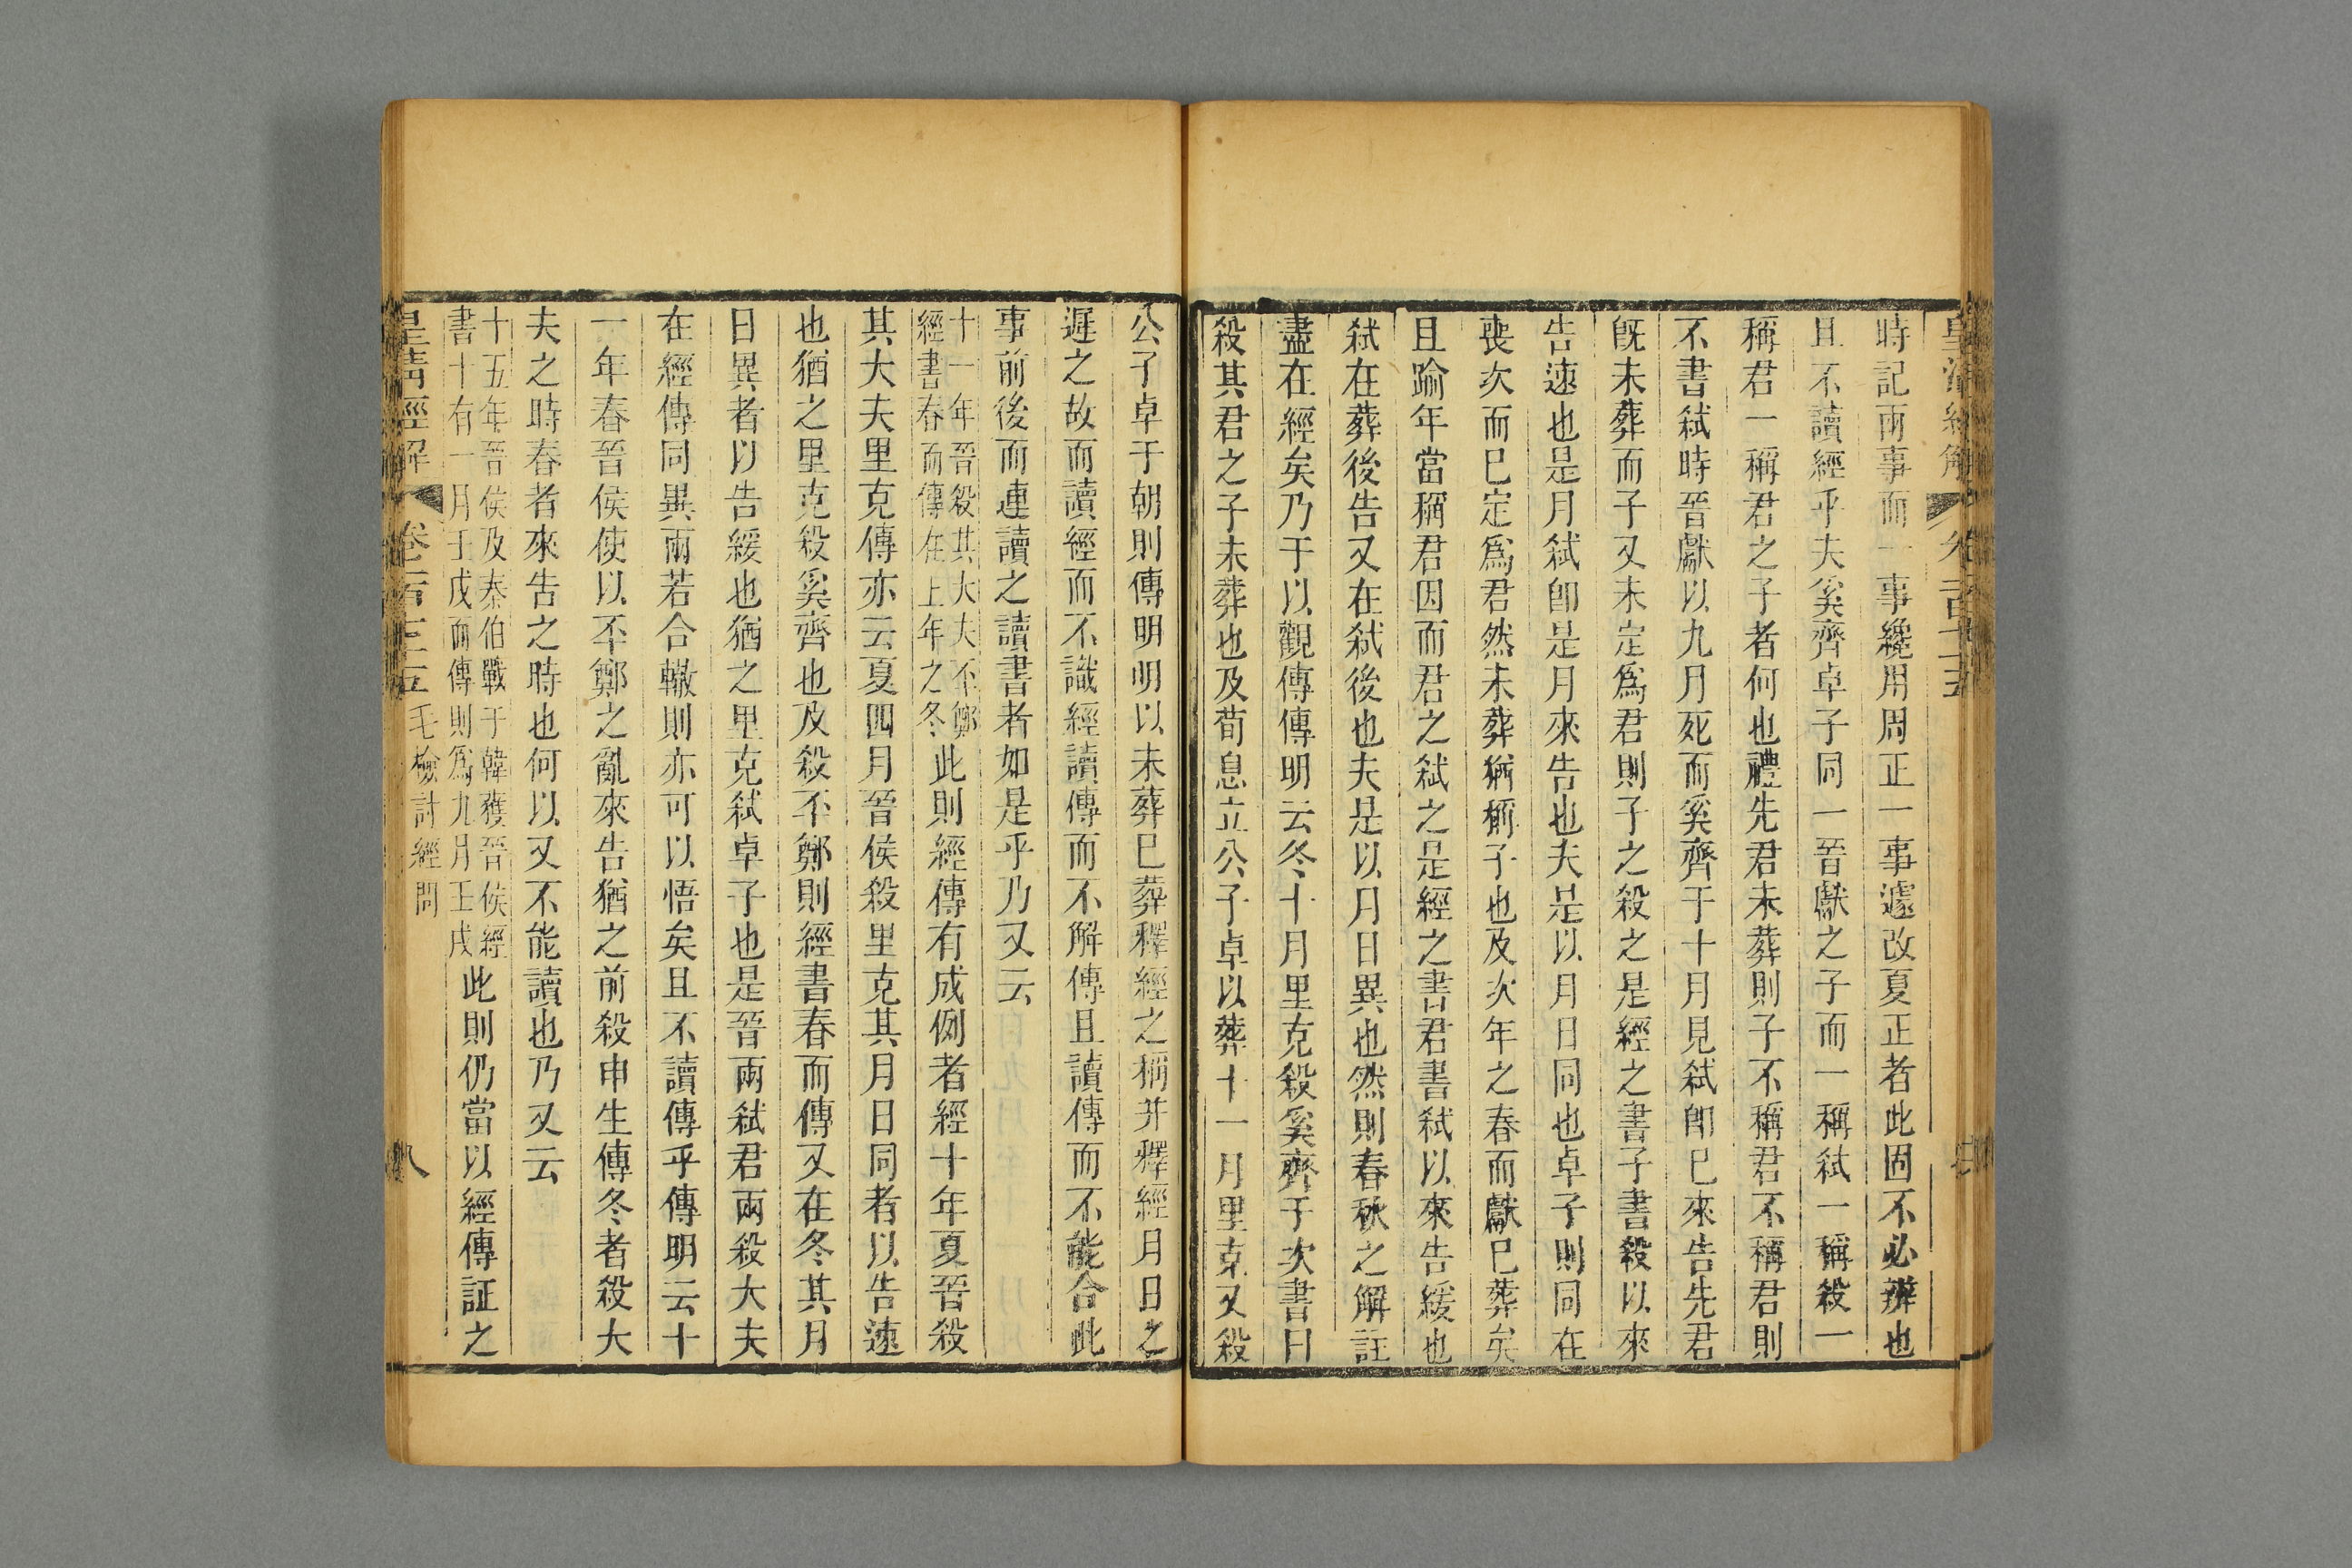 時記兩事而一事纔用周正一事遽改夏正者此固不必辨也
且不讀經乎夫奚齊卓子同一晉獻之子而一稱弒一稱殺一
稱君一稱君之子者何也禮先君未葬則子不稱君不稱君則
不書弒時晉獻以九月死而奚齊于十月見弒卽已來告先君
旣未葬而子又未定爲君則子之殺之是經之書子書殺以來
告速也是月弒卽是月來告也夫是以月日同也卓子則同在
喪次而已定爲君然未葬猶稱子也及次年之春而獻已葬矣
且踰年當稱君因而君之弒之是經之書君書弒以來告緩也
弒在葬後告又在弒後也夫是以月日異也然則春秋之解註
盡在經矣乃于以觀傳傳明云冬十月里克殺奚齊于次書曰
殺其君之子未葬也及荀息立公子卓以葬十一月里克又殺
公子卓于朝則傳明明以未葬巳葬釋經之稱并釋經月日之
遲之故而讀經而不識經讀傳而不解傳且讀傳而不能合此
事前後而連讀之讀書者如是乎乃又云
十一年晉殺其大夫丕鄭
經書春而傳在上年之冬
此則經傳有成例者經十年夏晉殺
其大夫里克傳亦云夏四月晉侯殺里克其月日同者以告速
也猶之里克殺奚齊也及殺丕鄭則經書春而傳又在冬其月
日異者以告緩也猶之里克弒卓子也是晉兩弒君兩殺大夫
在經傳同異兩若合轍則亦可以悟矣且不讀傳乎傳明云十
一年春晉侯使以丕鄭之亂來告猶之前殺申生傳冬者殺大
夫之時春者來告之時也何以又不能讀也乃又云
十五年晉侯及秦伯戰于韓獲晉侯經
書十有一月壬戌而傳則爲九月壬戌
此則仍當以經傳証之
皇淸經解 卷一百七十五 毛檢討經問 八